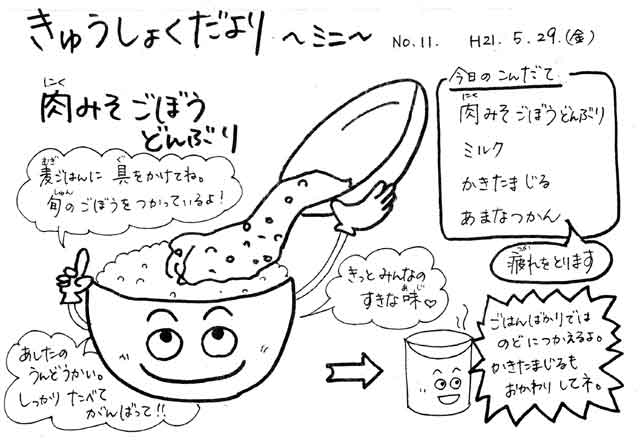 きゅうしょくだより 〜ミニ〜 No.11. H21. 5. 29.(金)
にく
肉みそごぼう
どんぶり
今日のこんだて
にく
肉みそごぼうどんぶり
ミルク
かきたまじる
あまなつかん
つか
疲れをとります
むぎ ぐ
麦ごはんに 具をかけてね。
しゅん
旬のごぼうをつかっているよ!
きっとみんなの
あじ
すきな味♡
あしたの
うんどうかい。
しっかり たべて
がんばって!!
ごはんばかりでは
のどにつかえるよ。
かきたまじるも
おかわり してネ。